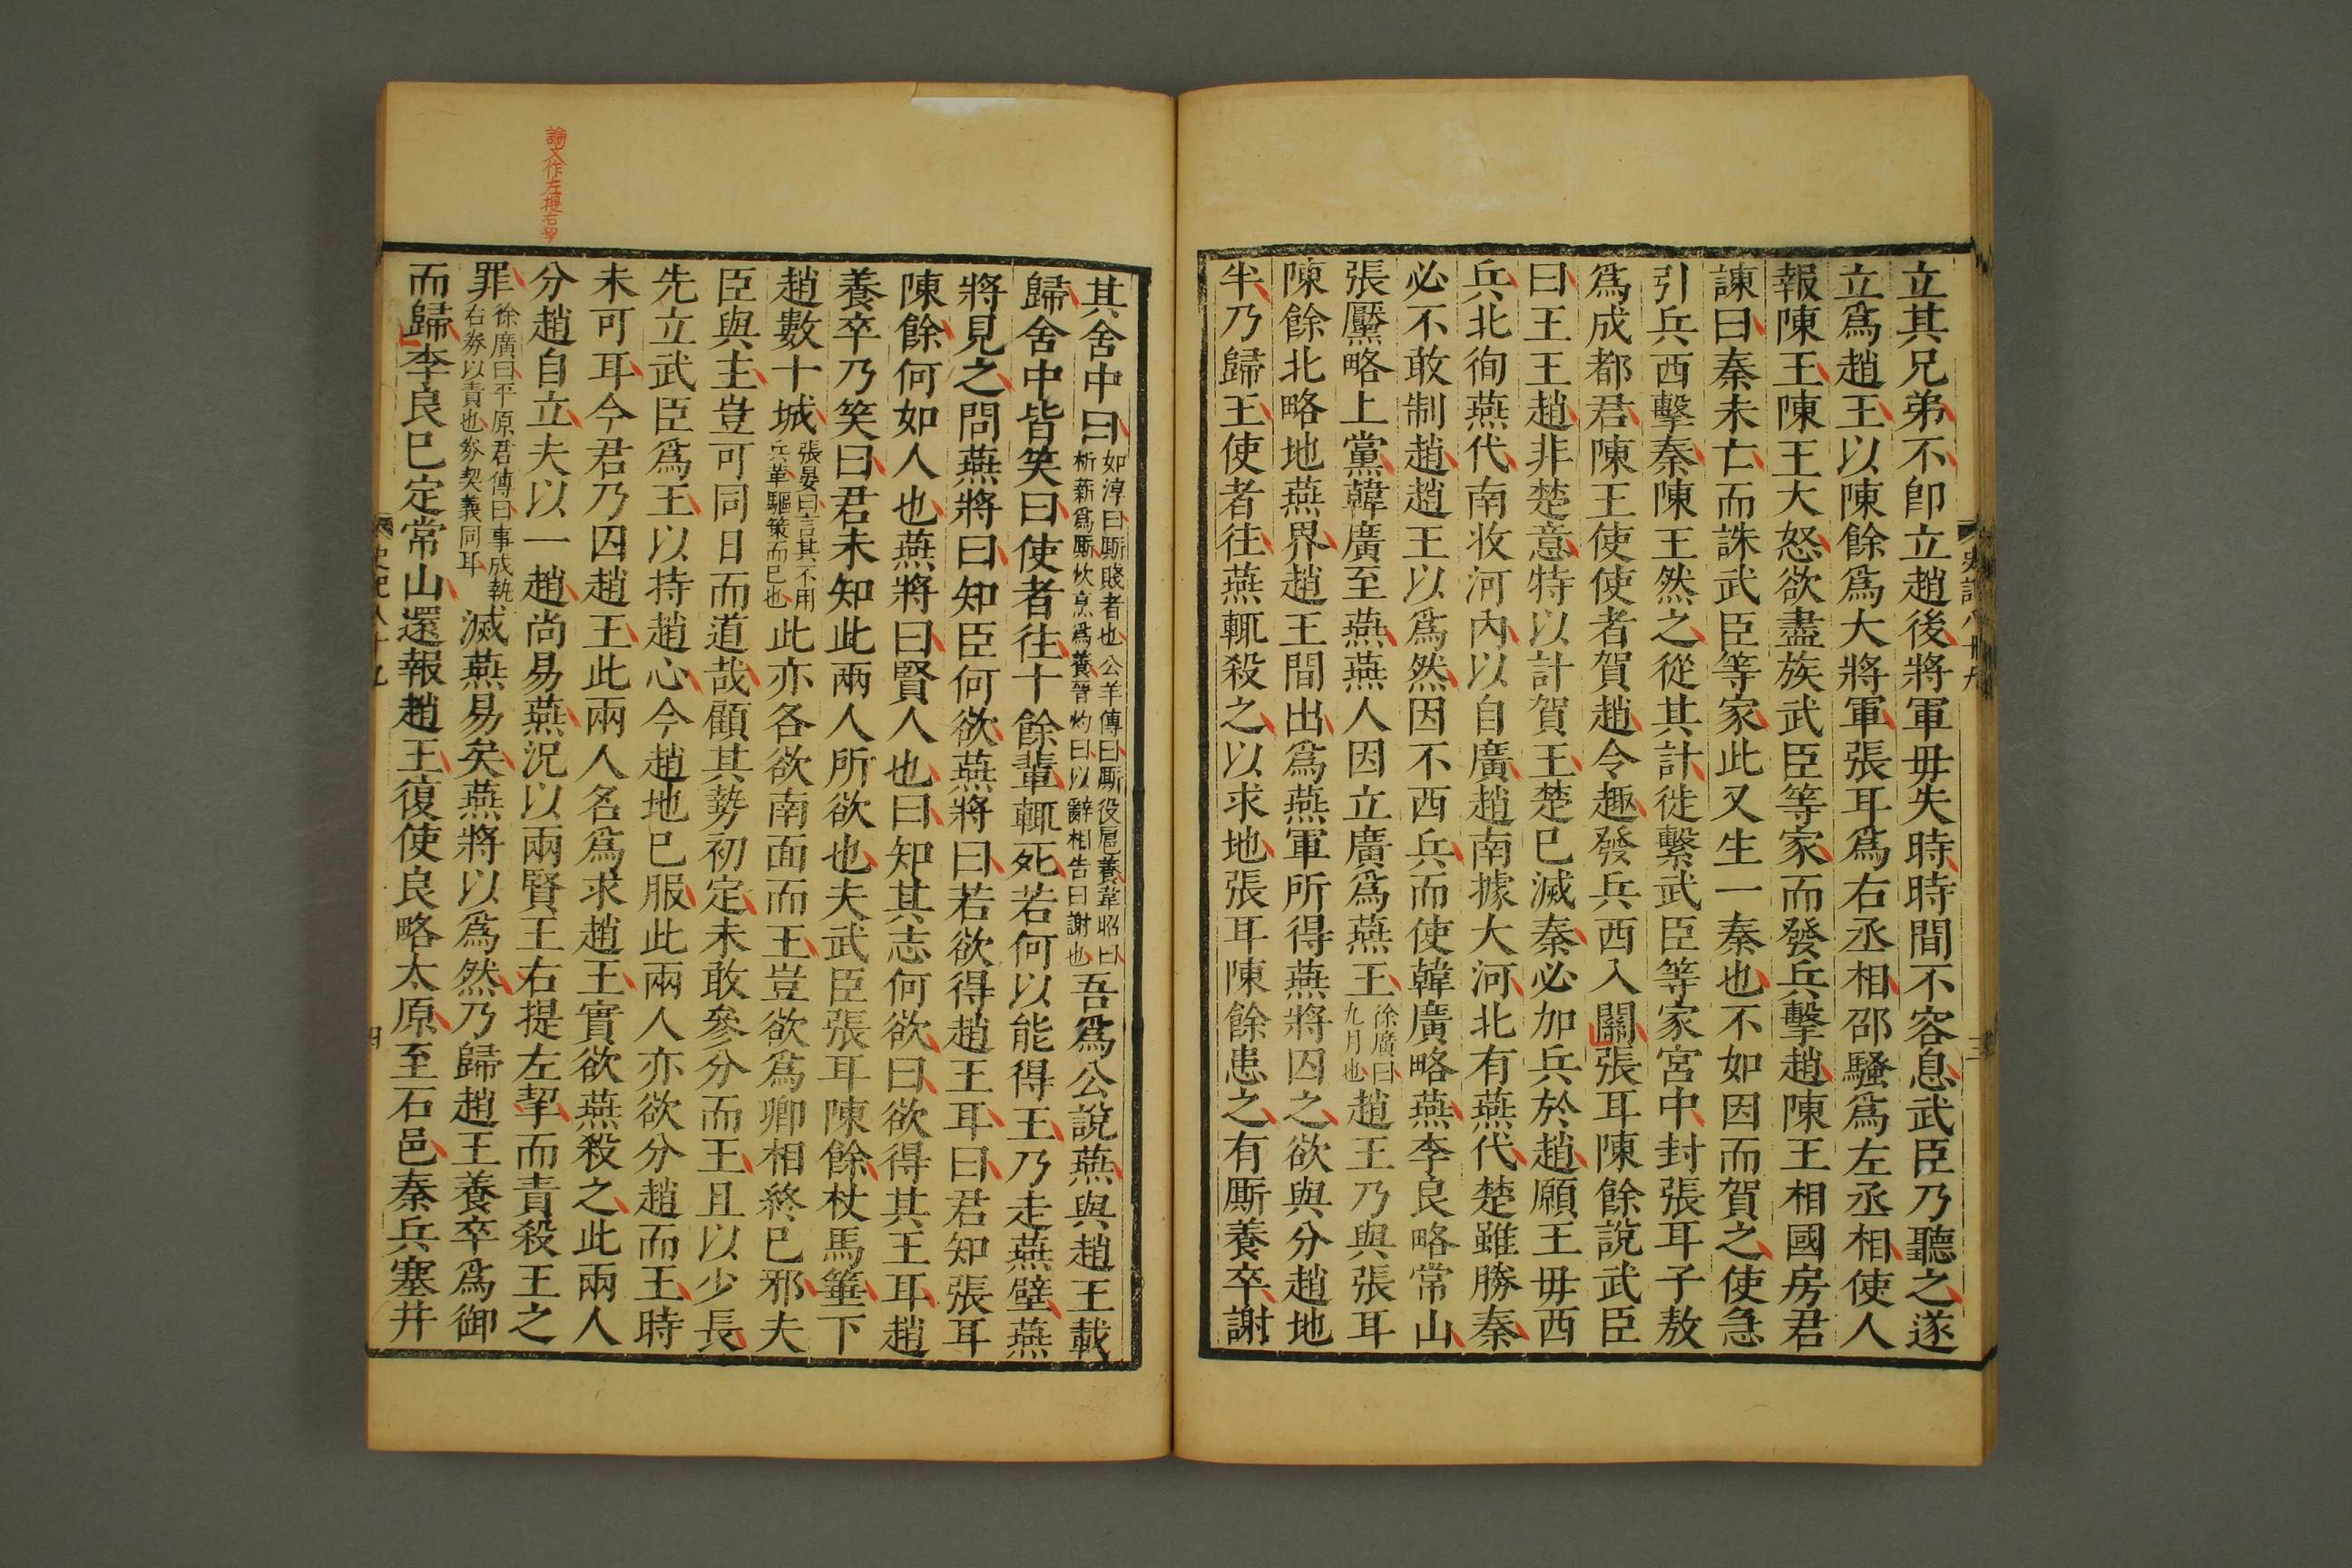 立其兄弟不卽立趙後將軍毋失時時間不容息武臣乃聽之遂
立爲趙王以陳餘爲大將軍張耳爲右丞相邵騷爲左丞相使人
報陳王陳王大怒欲盡族武臣等家而發兵擊趙陳王相國房君
諫曰秦未亡而誅武臣等家此又生一秦也不如因而賀之使急
引兵西擊秦陳王然之從其計徙繫武臣等家宮中封張耳子敖
爲成都君陳王使使者賀趙令趣發兵西入關張耳陳餘說武臣
曰王王趙非楚意特以計賀王楚巳滅秦必加兵於趙願王毋西
兵北徇燕代南收河內以自廣趙南據大河北有燕代楚雖勝秦
必不敢制趙趙王以爲然因不西兵而使韓廣略燕李良略常山
張黶略上黨韓廣至燕燕人因立廣爲燕王徐廣曰九月也趙王乃與張耳
陳餘北略地燕界趙王間出爲燕軍所得燕將囚之欲與分趙地
半乃歸王使者往燕輒殺之以求地張耳陳餘患之有厮養卒謝
史記八十九
三
其舍中曰如淳曰厮賤者也公羊傳曰厮役扈養韋昭曰析薪爲厮炊烹爲養晉灼曰以辭相告曰謝也吾爲公說燕與趙王載
歸舍中皆笑曰使者往十餘輩輒死若何以能得王乃走燕壁燕
將見之問燕將曰知臣何欲燕將曰若欲得趙王耳曰君知張耳
陳餘何如人也燕將曰賢人也曰知其志何欲曰欲得其王耳趙
養卒乃笑曰君未知此兩人所欲也夫武臣張耳陳餘杖馬箠下
趙數十城張晏曰言其不用兵革驅策而巳也此亦各欲南面而王豈欲爲卿相終巳邪夫
臣與主豈可同日而道哉顧其勢初定未敢參分而王且以少長
先立武臣爲王以持趙心今趙地巳服此兩人亦欲分趙而王時
未可耳今君乃囚趙王此兩人名爲求趙王實欲燕殺之此兩人
分趙自立夫以一趙尚易燕況以兩賢王右提左挈而責殺王之
罪徐廣曰平原君傳曰事成執右券以責也券契義同耳滅燕易矣燕將以爲然乃歸趙王養卒爲御
而歸李良巳定常山還報趙王復使良略太原至石邑秦兵塞井
史記八十九
四
論文作左提右挈